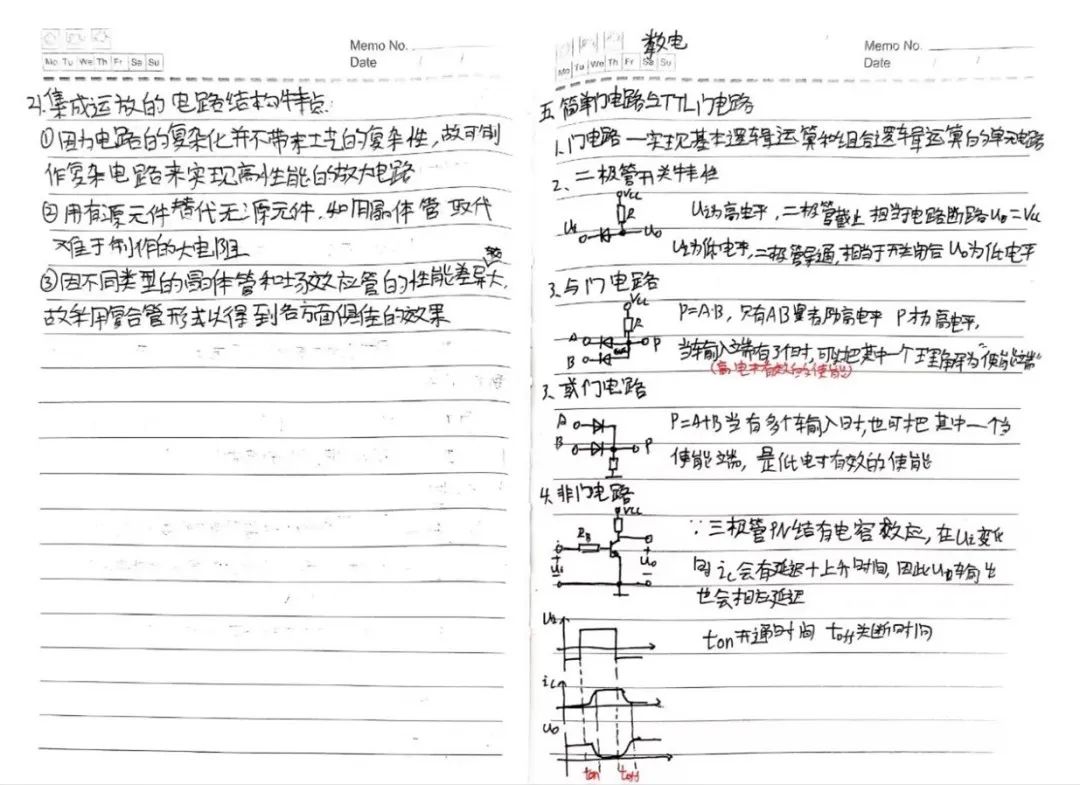 Memo No.
Mo Tu We Th Fr Sa Su
Date / /
21.集成运放的电路结构特点:
①因为电路的复杂化并不带来工艺的复杂性,故可制
作复杂电路来实现高性能的放大电路
②用有源元件替代无源元件,如用晶体管取代
难于制作的大电阻
③因不同类型的晶体管和场效应管的性能差异大,
故采用复合管形式以得到各方面俱佳的效果
数电
Memo No.
Mo Tu We Th Fr Sa Su
Date / /
五.简单门电路与TTL门电路
1.门电路—实现基本逻辑运算和组合逻辑运算的单元电路
2.二极管开关特性
Vcc
R
Ui
Uo
Ui为高电平,二极管截止 相当于电路断路Uo=Vcc
Ui为低电平,二极管导通,相当于开关闭合 Uo为低电平
3.与门电路
Vcc
R
A
B
P
P=A·B,只有AB皆为高电平 P才为高电平,
当输入端有多个时,可以把其中一个理解为"使能端"
(高电平有效的使能)
3.或门电路
A
B
P
P=A+B当有多个输入时,也可把其中一个当
使能端,是低电平有效的使能
4.非门电路
Vcc
RB
+
Ui
-
+
Uo
-
∵三极管PN结有电容效应,在Ui变化
时ic会有延迟+上升时间,因此Uo输出
也会相应延迟
ton开通时间 toff关断时间
Ui
ic
Uo
ton
toff